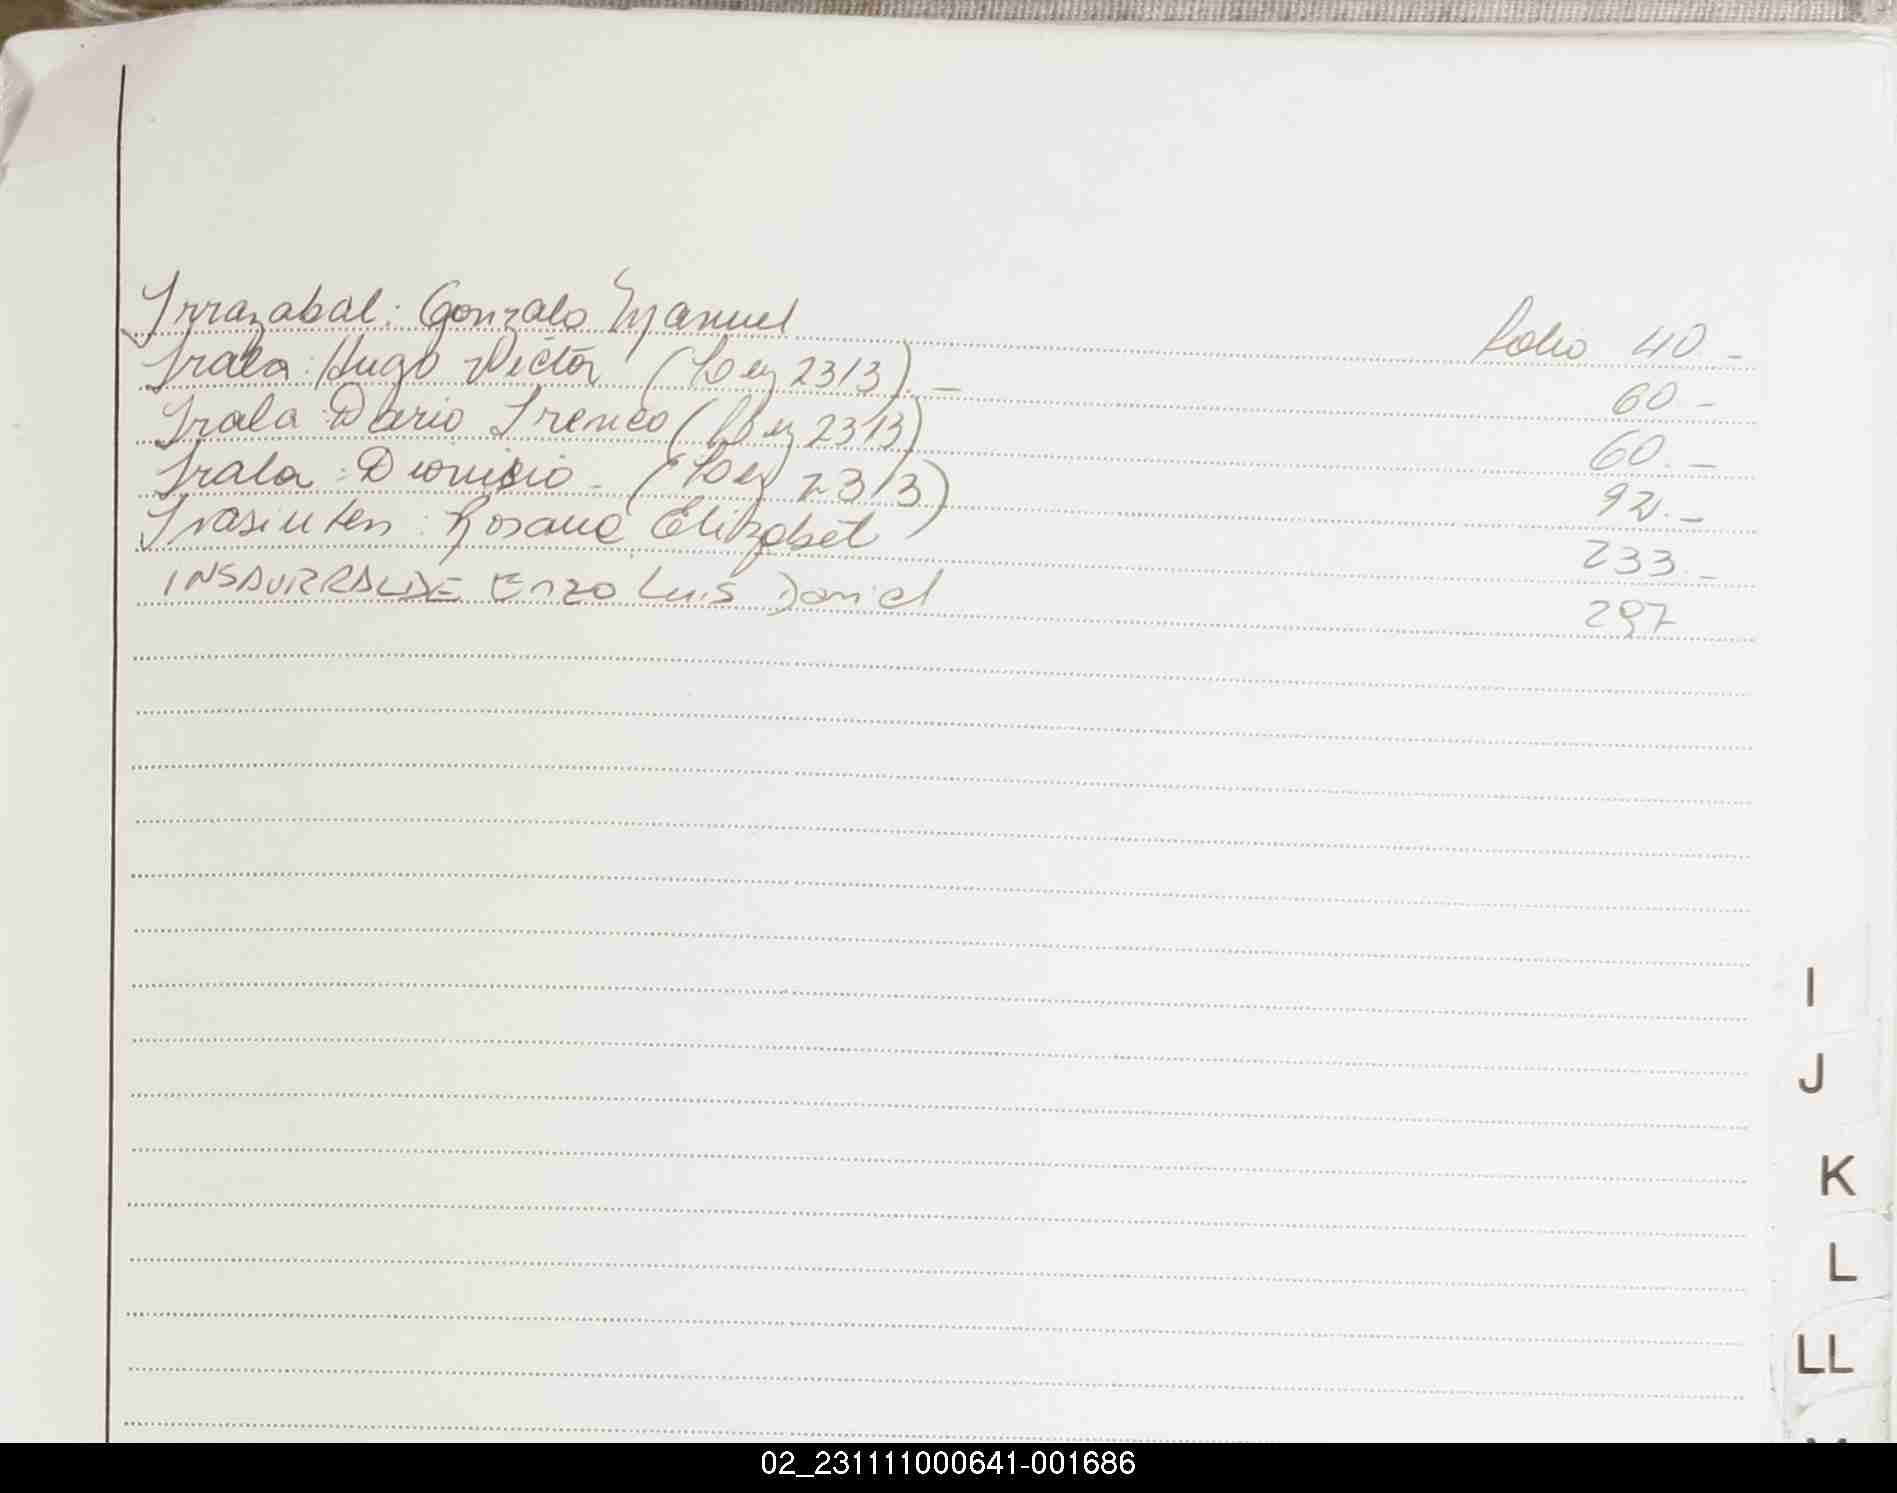 Irrazabal: Gonzalo Manuel folio 40.-
Irala: Hugo Victor (Ley 2313).- 60.-
Irala Dario Ireneo (Ley 2313) 60.-
Irala: Dionisio - (Ley 2313) 92.-
Rosana Elizabet 233.-
INSAURRALDE Enzo Luis Daniel 297
I
J
K
L
LL
02_231111000641-001686